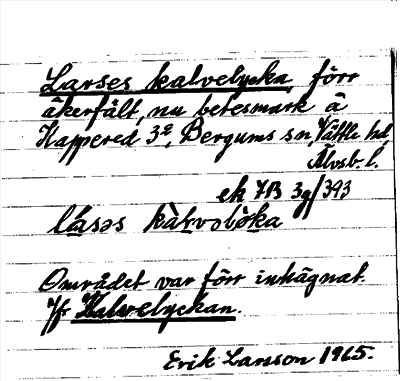 Larses kalvelycka, förr
åkerfält, nu betesmark å
Kappered 3², Bergums sn, Vättle hd,
Älvsb. l.
ek 7B 3g/393
Området var förr inhägnat.
Jfr Kalvelyckan.
Erik Larsson 1965.